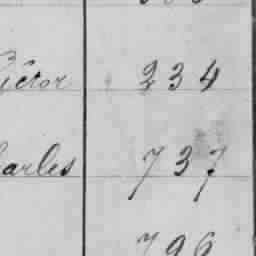 Victor 234
Charles 737
796